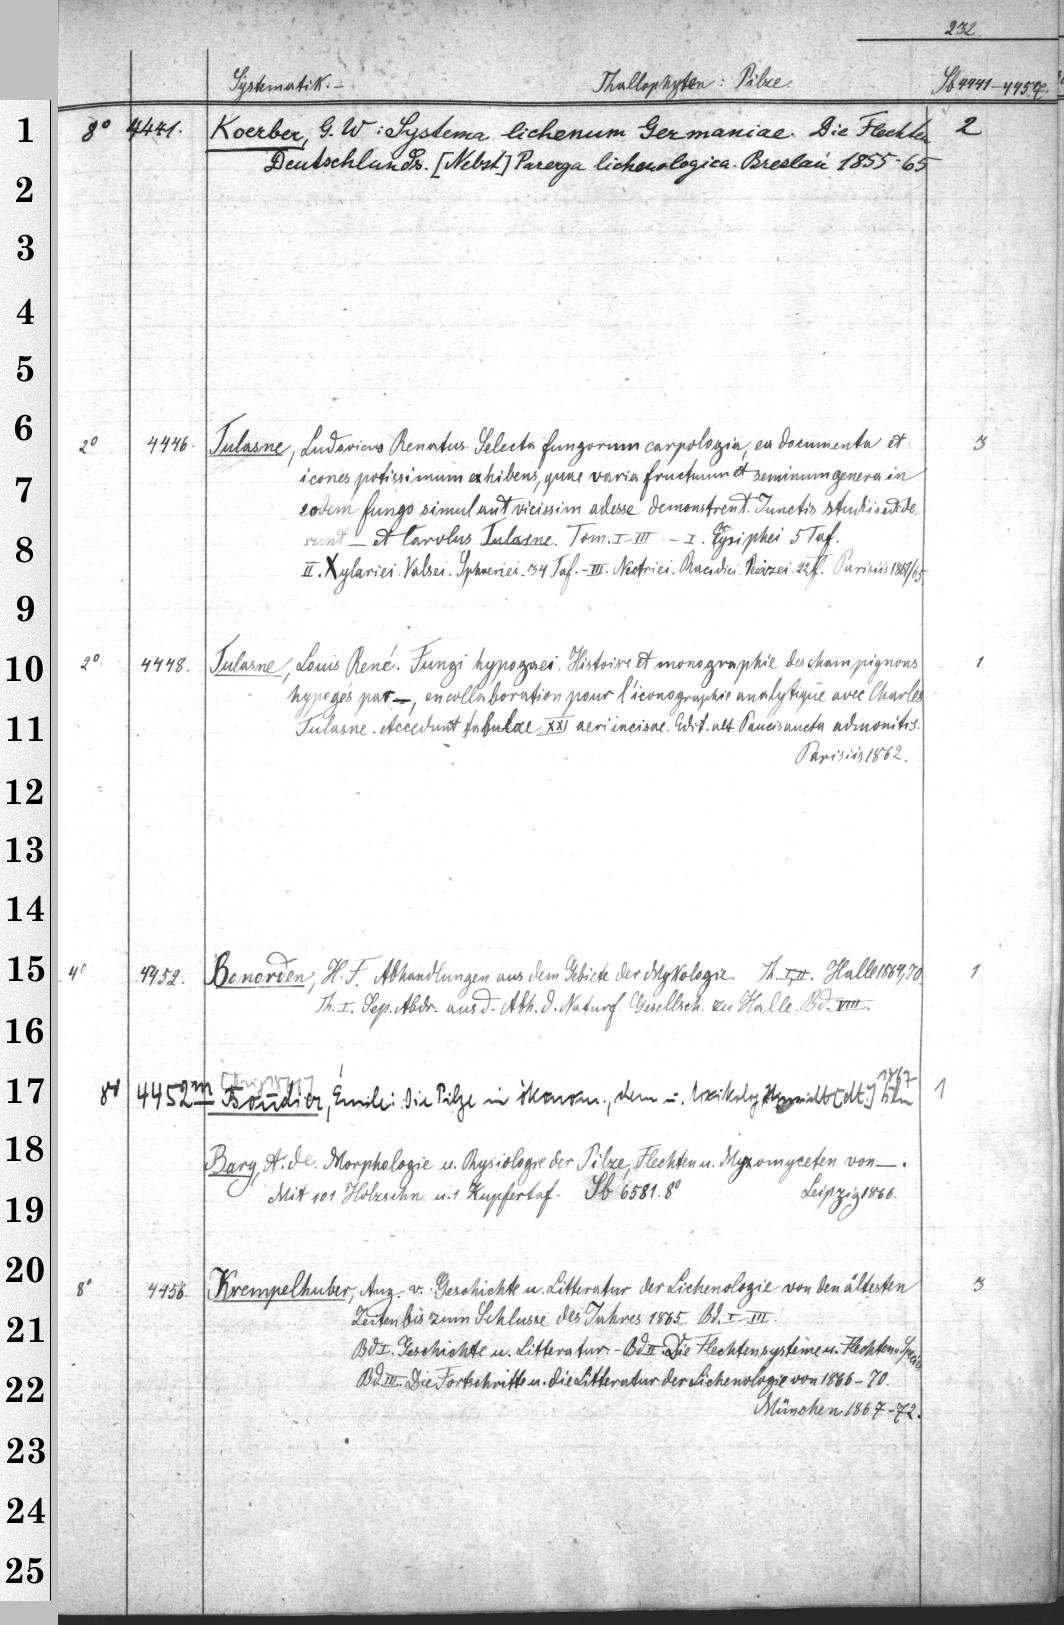 232.
Systematik. — Thallophyten: Pilze. Sb 4441-4459.
1 8° 4441. Koerber, G. W: Systema lichenum Germaniae. Die Flechten 2
Deutschlands. [Nebst] Parerga lichenologica. Breslau 1855-65
2
3
4
5
6 2° 4446. Tulasne, Ludovicus Renatus. Selecta fungorum carpologia, ea documenta et 3
7 icones potissimum exhibens, quae varia fructuum et seminum genera in
eodem fungo simul aut vicissim adesse demonstrent. Junctis studiis edide
8 runt — et Carolus Tulasne. Tom. I-III — I. Erysiphei 5 Taf.
II. Xylariei. Valsei. Sphaeriei. 34 Taf. - III. Nectriei. Phacidiei. Pezizei. 22 T. Parisiis 1861/65
9
10 2° 4448. Tulasne, Louis René. Fungi hypogaei. Histoire et monographie des champignons 1
hypogés par —, en collaboration pour l'iconographie analytique avec Charles
11 Tulasne. Accedunt tabulae XXI aeri incisae. Edit. alt. Paucis aucta admonitis.
Parisiis 1862.
12
13
14
15 4° 4452. Bonorden, H. F. Abhandlungen aus dem Gebiete der Mykologie. Th. I, II. Halle 1864, 70. 1
Th. I. Sep. Abdr. aus d. Abh. d. Naturf. Gesellsch. zu Halle. Bd. VIII.
16
1867
17 8° 4452m Boudier, Émile: Die Pilze in ökonom., chem u. toxikolog. Hinsicht [dt.] Bln 1
18 Bary, A. de. Morphologie u. Physiologie der Pilze, Flechten u. Myxomyceten von —.
19 Mit 101 Holzschn. u. 1 Kupfertaf. Sb 6581.8° Leipzig 1866.
20 8° 4456. Krempelhuber, Aug. v. Geschichte u. Litteratur der Lichenologie von den ältesten 3
21 Zeiten bis zum Schlusse des Jahres 1865. Bd. I-III.
Bd I. Geschichte u. Litteratur. - Bd II. Die Flechtensysteme u. Flechten Species
22 Bd. III. Die Fortschritte u. die Litteratur der Lichenologie von 1866-70.
München 1867-72.
23
24
25